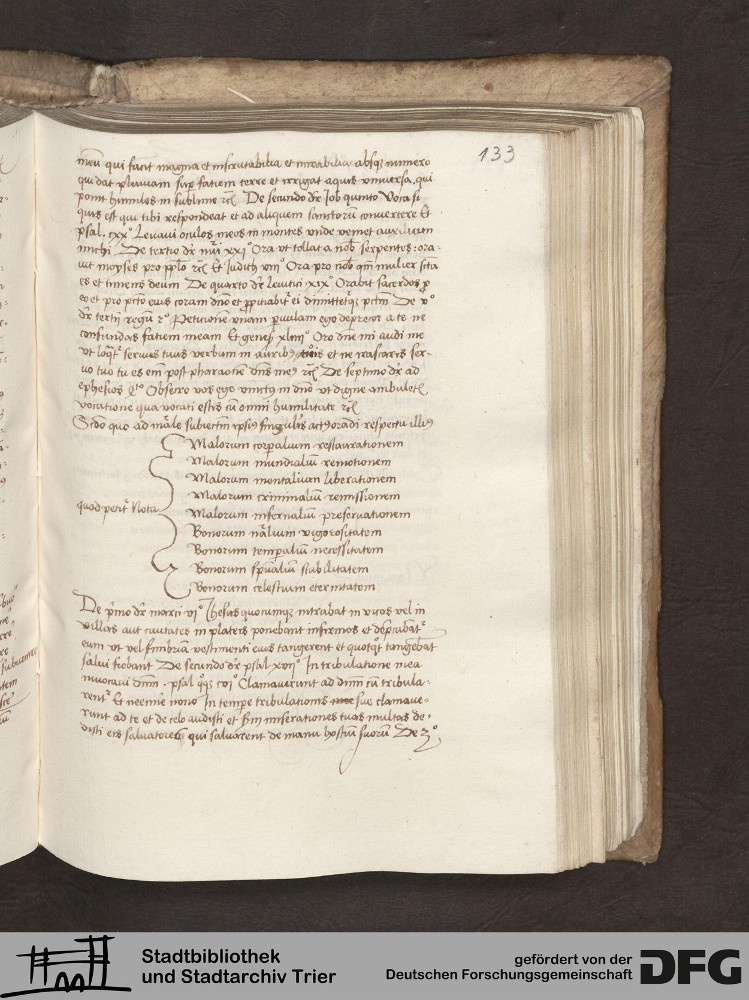 133
meū qui facit magna et inscrutabilia et mirabilia absqȝ numero
qui dat pluviam sup faciem terre et irrigat aquis vniversa. qui
ponit humiles in sublime ⁊cͭ De secundo dr̄ Job quinto Voca si
quis est qui tibi respondeat et ad aliquem sanctorū convertere Et
psal. cxxº Levavi oculos meos in montes vnde veniet auxilium
michi De tertio dr̄ nūi xxiº Ora vt tollat a nob̄ serpentes: ora-
vit moyses pro pplo ⁊cͭ Et Judith viijº Ora pro nob̄ qm̄ mulier scta
es et timens deum De quarto dr̄ Levitici xixº Orabit sacerdos p
eo et pro pcto eius coram dno et ppitiabit ei dimittetqȝ pctm De vº
dr̄ tertij regū 2º Petitionem vnam parvulam ego deprecor a te ne
confundas faciem meam Et genes xliiijº Oro dne mi audi me
vt loqr servus tuus verbum in auribȝ tuis et ne irascaris ser-
vo tuo tu es em̄ post pharaonem dns meȝ ⁊cͭ De septimo dr̄ ad
ephesios 4to Obsecro vos ego vinctȝ in dno vt digne ambuletis
vocatione qua vocati estis cū omni humilitate ⁊cͭ
Scdo quo ad māle subiectm ipsiȝ singulis actȝ orādi respectu illiȝ
Malorum corpalium restaurationem
Malorum mundialiū remotionem
Malorum mentalium liberationem
Malorum criminaliū remissionem
quod petit Nota
Malorum infernaliū preservationem
Bonorum nālium vigorositatem
Bonorum tempaliū necessitatem
Bonorum spūaliū stabilitatem
Bonorum celestium eternitatem
De pmo dr̄ marci viº Jhesus quocumqȝ intrabat in vicos vel in
villas aut civitates in plateis ponebant infirmos et depcabāt
eum vt vel fimbriā vestimenti eius tangerent et quotqt tangebāt
salvi fiebant De secundo dr̄ psal xvijº In tribulatione mea
invocavi dnm. psal qqȝ cviº Clamaverunt ad dnm cū tribula-
rent Et neemie nono In tempe tribulationis sue clamave-
runt ad te et de celo audisti et scdm miserationes tuas multas de-
disti eis salvatores qui salvarent de manu hostiū suorū De 3º
Stadtbibliothek
und Stadtarchiv Trier
gefördert von der
Deutschen Forschungsgemeinschaft
DFG